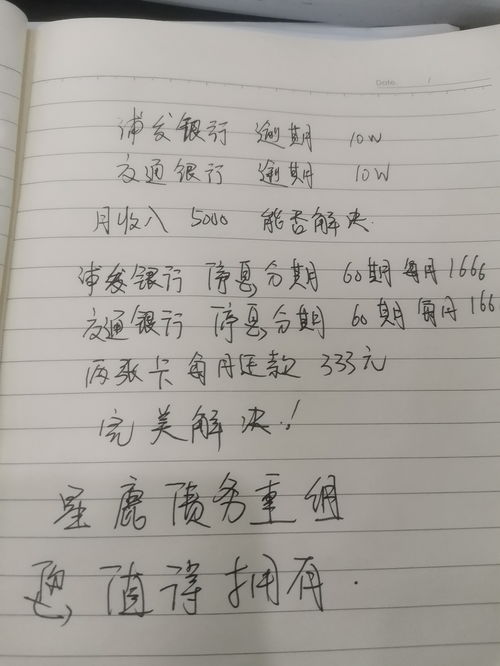 Date.
浦发银行 逾期 10W
交通银行 逾期 10W
月收入 5000 能否解决.
浦发银行 停息分期 60期每月1666
交通银行 停息分期 60期 每月166
两张卡每月还款 333元
完美解决!
星鹿债务重组
您值得拥有.